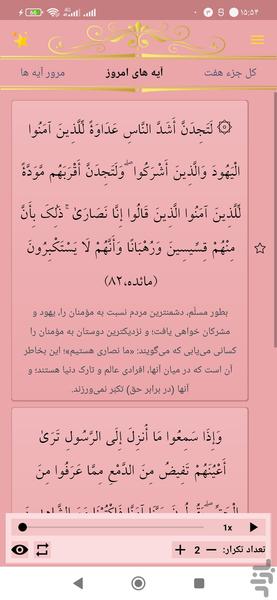 ۱۵:۵۴
کل جزء هفت
آیه های امروز
مرور آیه ها
۞ لَتَجِدَنَّ أَشَدَّ النَّاسِ عَدَاوَةً لِّلَّذِينَ آمَنُوا
الْيَهُودَ وَالَّذِينَ أَشْرَكُوا ۖ وَلَتَجِدَنَّ أَقْرَبَهُم مَّوَدَّةً
لِّلَّذِينَ آمَنُوا الَّذِينَ قَالُوا إِنَّا نَصَارَىٰ ۚ ذَٰلِكَ بِأَنَّ
مِنْهُمْ قِسِّيسِينَ وَرُهْبَانًا وَأَنَّهُمْ لَا يَسْتَكْبِرُونَ
(مائده،۸۲)
بطور مسلّم، دشمنترین مردم نسبت به مؤمنان را، یهود و
مشرکان خواهی یافت؛ و نزدیکترین دوستان به مؤمنان را
کسانی می‌یابی که می‌گویند: «ما نصاری هستیم»؛ این بخاطر
آن است که در میان آنها، افرادی عالم و تارک دنیا هستند؛ و
آنها (در برابر حق) تکبّر نمی‌ورزند.
وَإِذَا سَمِعُوا مَا أُنزِلَ إِلَى الرَّسُولِ تَرَىٰ
أَعْيُنَهُمْ تَفِيضُ مِنَ الدَّمْعِ مِمَّا عَرَفُوا مِنَ
1x
تعداد تکرار: − 2 +
بازار